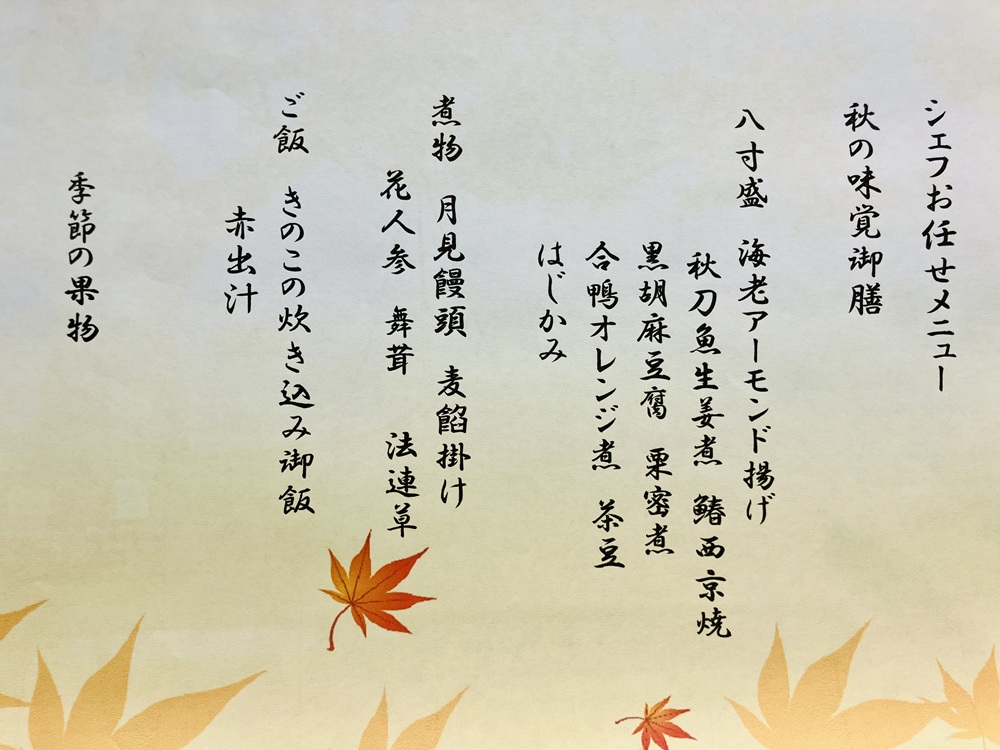 シェフお任せメニュー
秋の味覚御膳
八寸盛　海老アーモンド揚げ
秋刀魚生姜煮　鰆西京焼
黒胡麻豆腐　栗密煮
合鴨オレンジ煮　茶豆
はじかみ
煮物　月見饅頭　麦餡掛け
花人参　舞茸　法連草
ご飯　きのこの炊き込み御飯
赤出汁
季節の果物